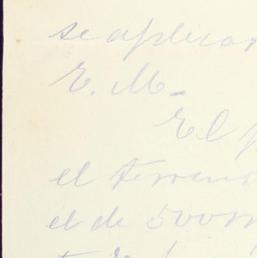 se aplicar
E. M.
El p
el terreno
el de 500 m